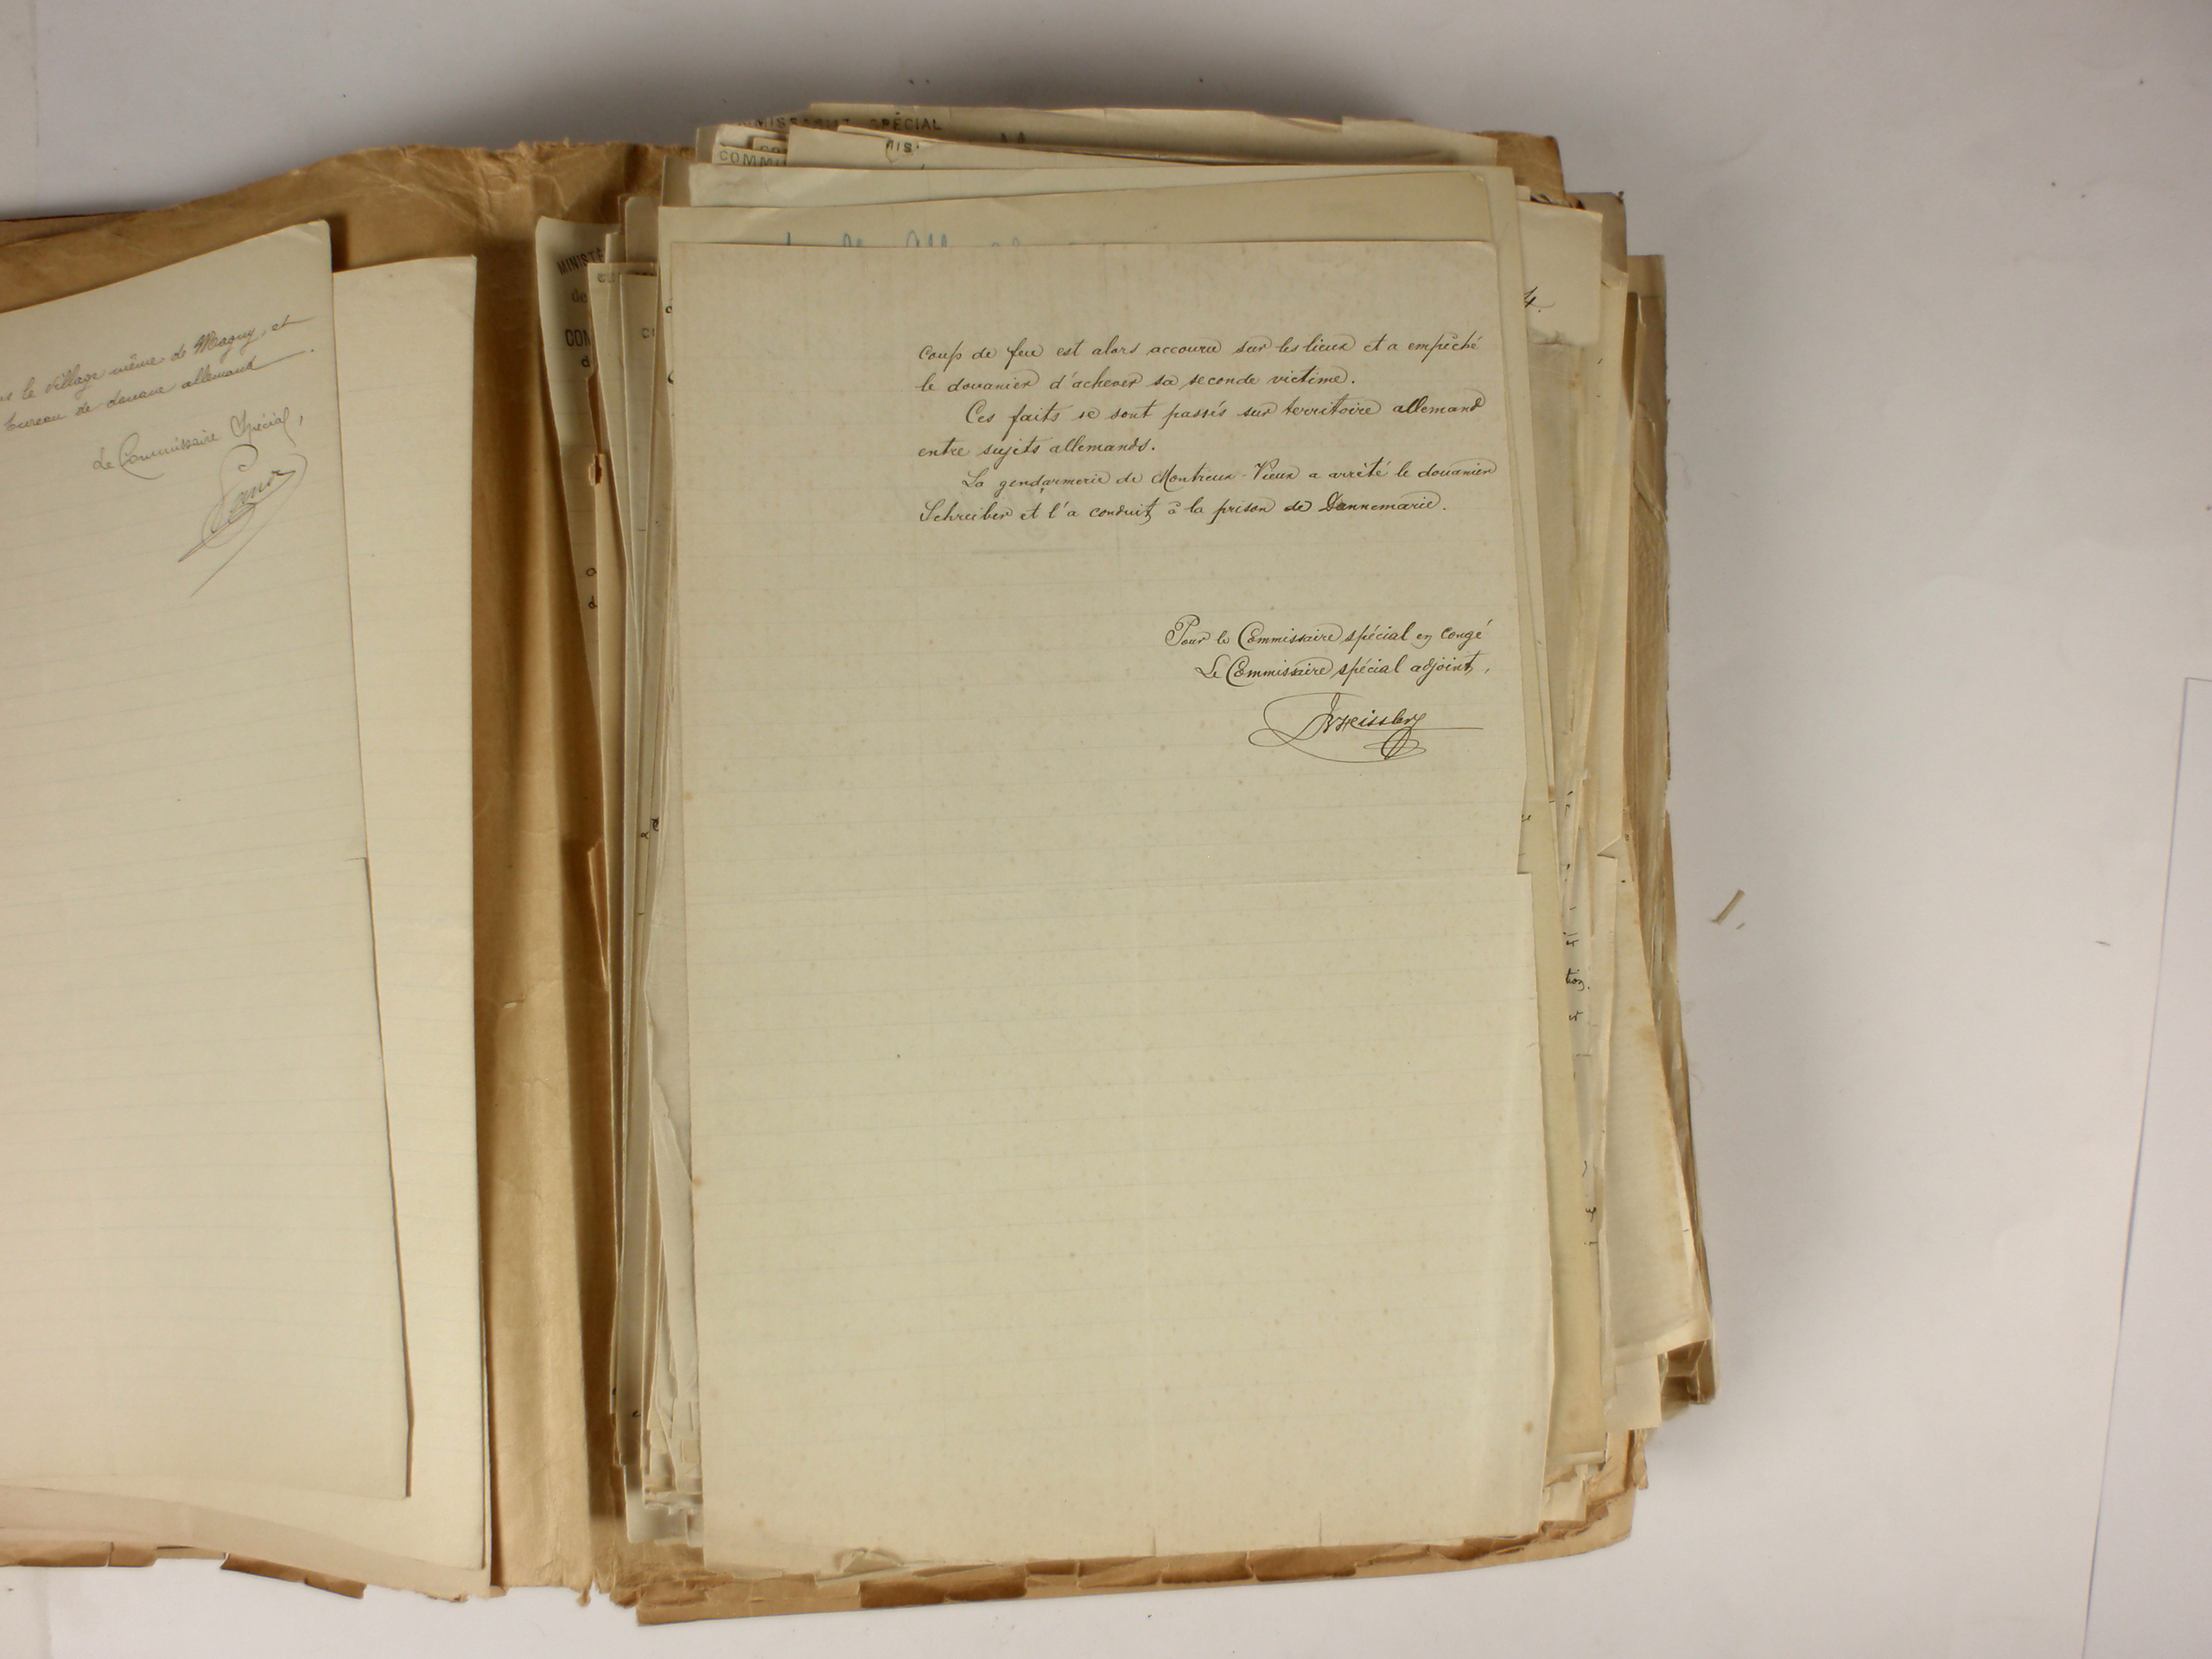 le village même de Magny, et
bureau de douane allemand.
Le Commissaire Spécial,
MISSARIAT SPÉCIAL
COMMI
MINISTÈ
de
CON
coup de feu est alors accouru sur les lieux et a empêché
le douanier d'achever sa seconde victime.
Ces faits se sont passés sur territoire allemand
entre sujets allemands.
La gendarmerie de Montreux-Vieux a arrêté le douanier
Schreiber et l'a conduit à la prison de Dannemarie.
Pour le Commissaire spécial en congé
Le Commissaire spécial adjoint,
tion.